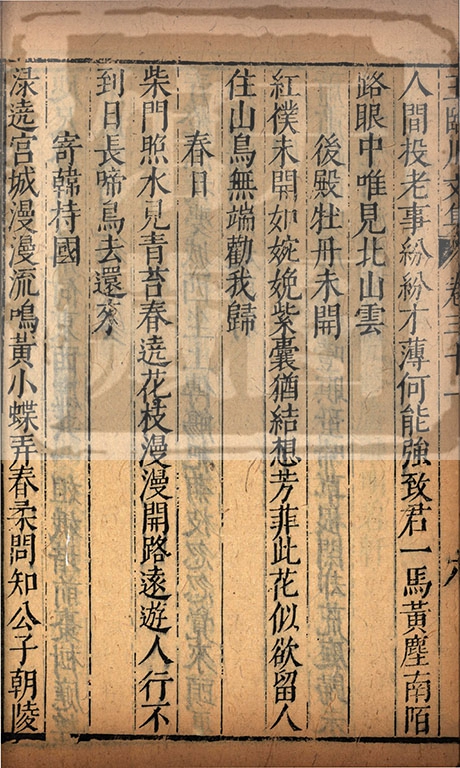 王臨川文集 卷三十一 六
人間投老事紛紛才薄何能強致君一馬黃塵南陌
路眼中唯見北山雲
後殿牡丹未開
紅僕未開如婉娩紫囊猶結想芳菲此花似欲留人
住山鳥無端勸我歸
春日
柴門照水見青苔春遶花枝漫漫開路遠遊人行不
到日長啼鳥去還來
寄韓持國
淥遶宮城漫漫流鳴黃小蝶弄春柔問知公子朝陵